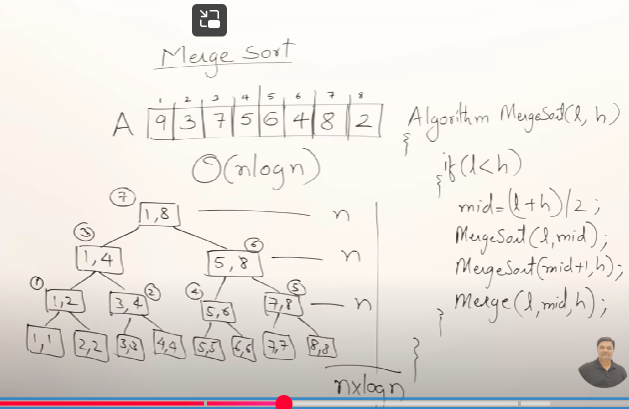 Merge Sort
1 2 3 4 5 6 7 8
A 9 3 7 5 6 4 8 2
O(nlogn)
7
1,8 n
3 6
1,4 5,8 n
1 2 4 5
1,2 3,4 5,6 7,8 n
1,1 2,2 3,3 4,4 5,5 6,6 7,7 8,8
nxlogn
Algorithm MergeSort(l, h)
{
if(l<h)
{
mid=(l+h)/2;
MergeSort(l,mid);
MergeSort(mid+1,h);
Merge(l,mid,h);
}
}